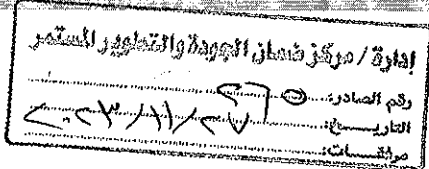 إدارة / مركز ضمان الجودة والتطوير المستمر
رقم الصادر:
التاريـــخ: ٢٠٢٣/١١/٢٧
مرفقـــات: